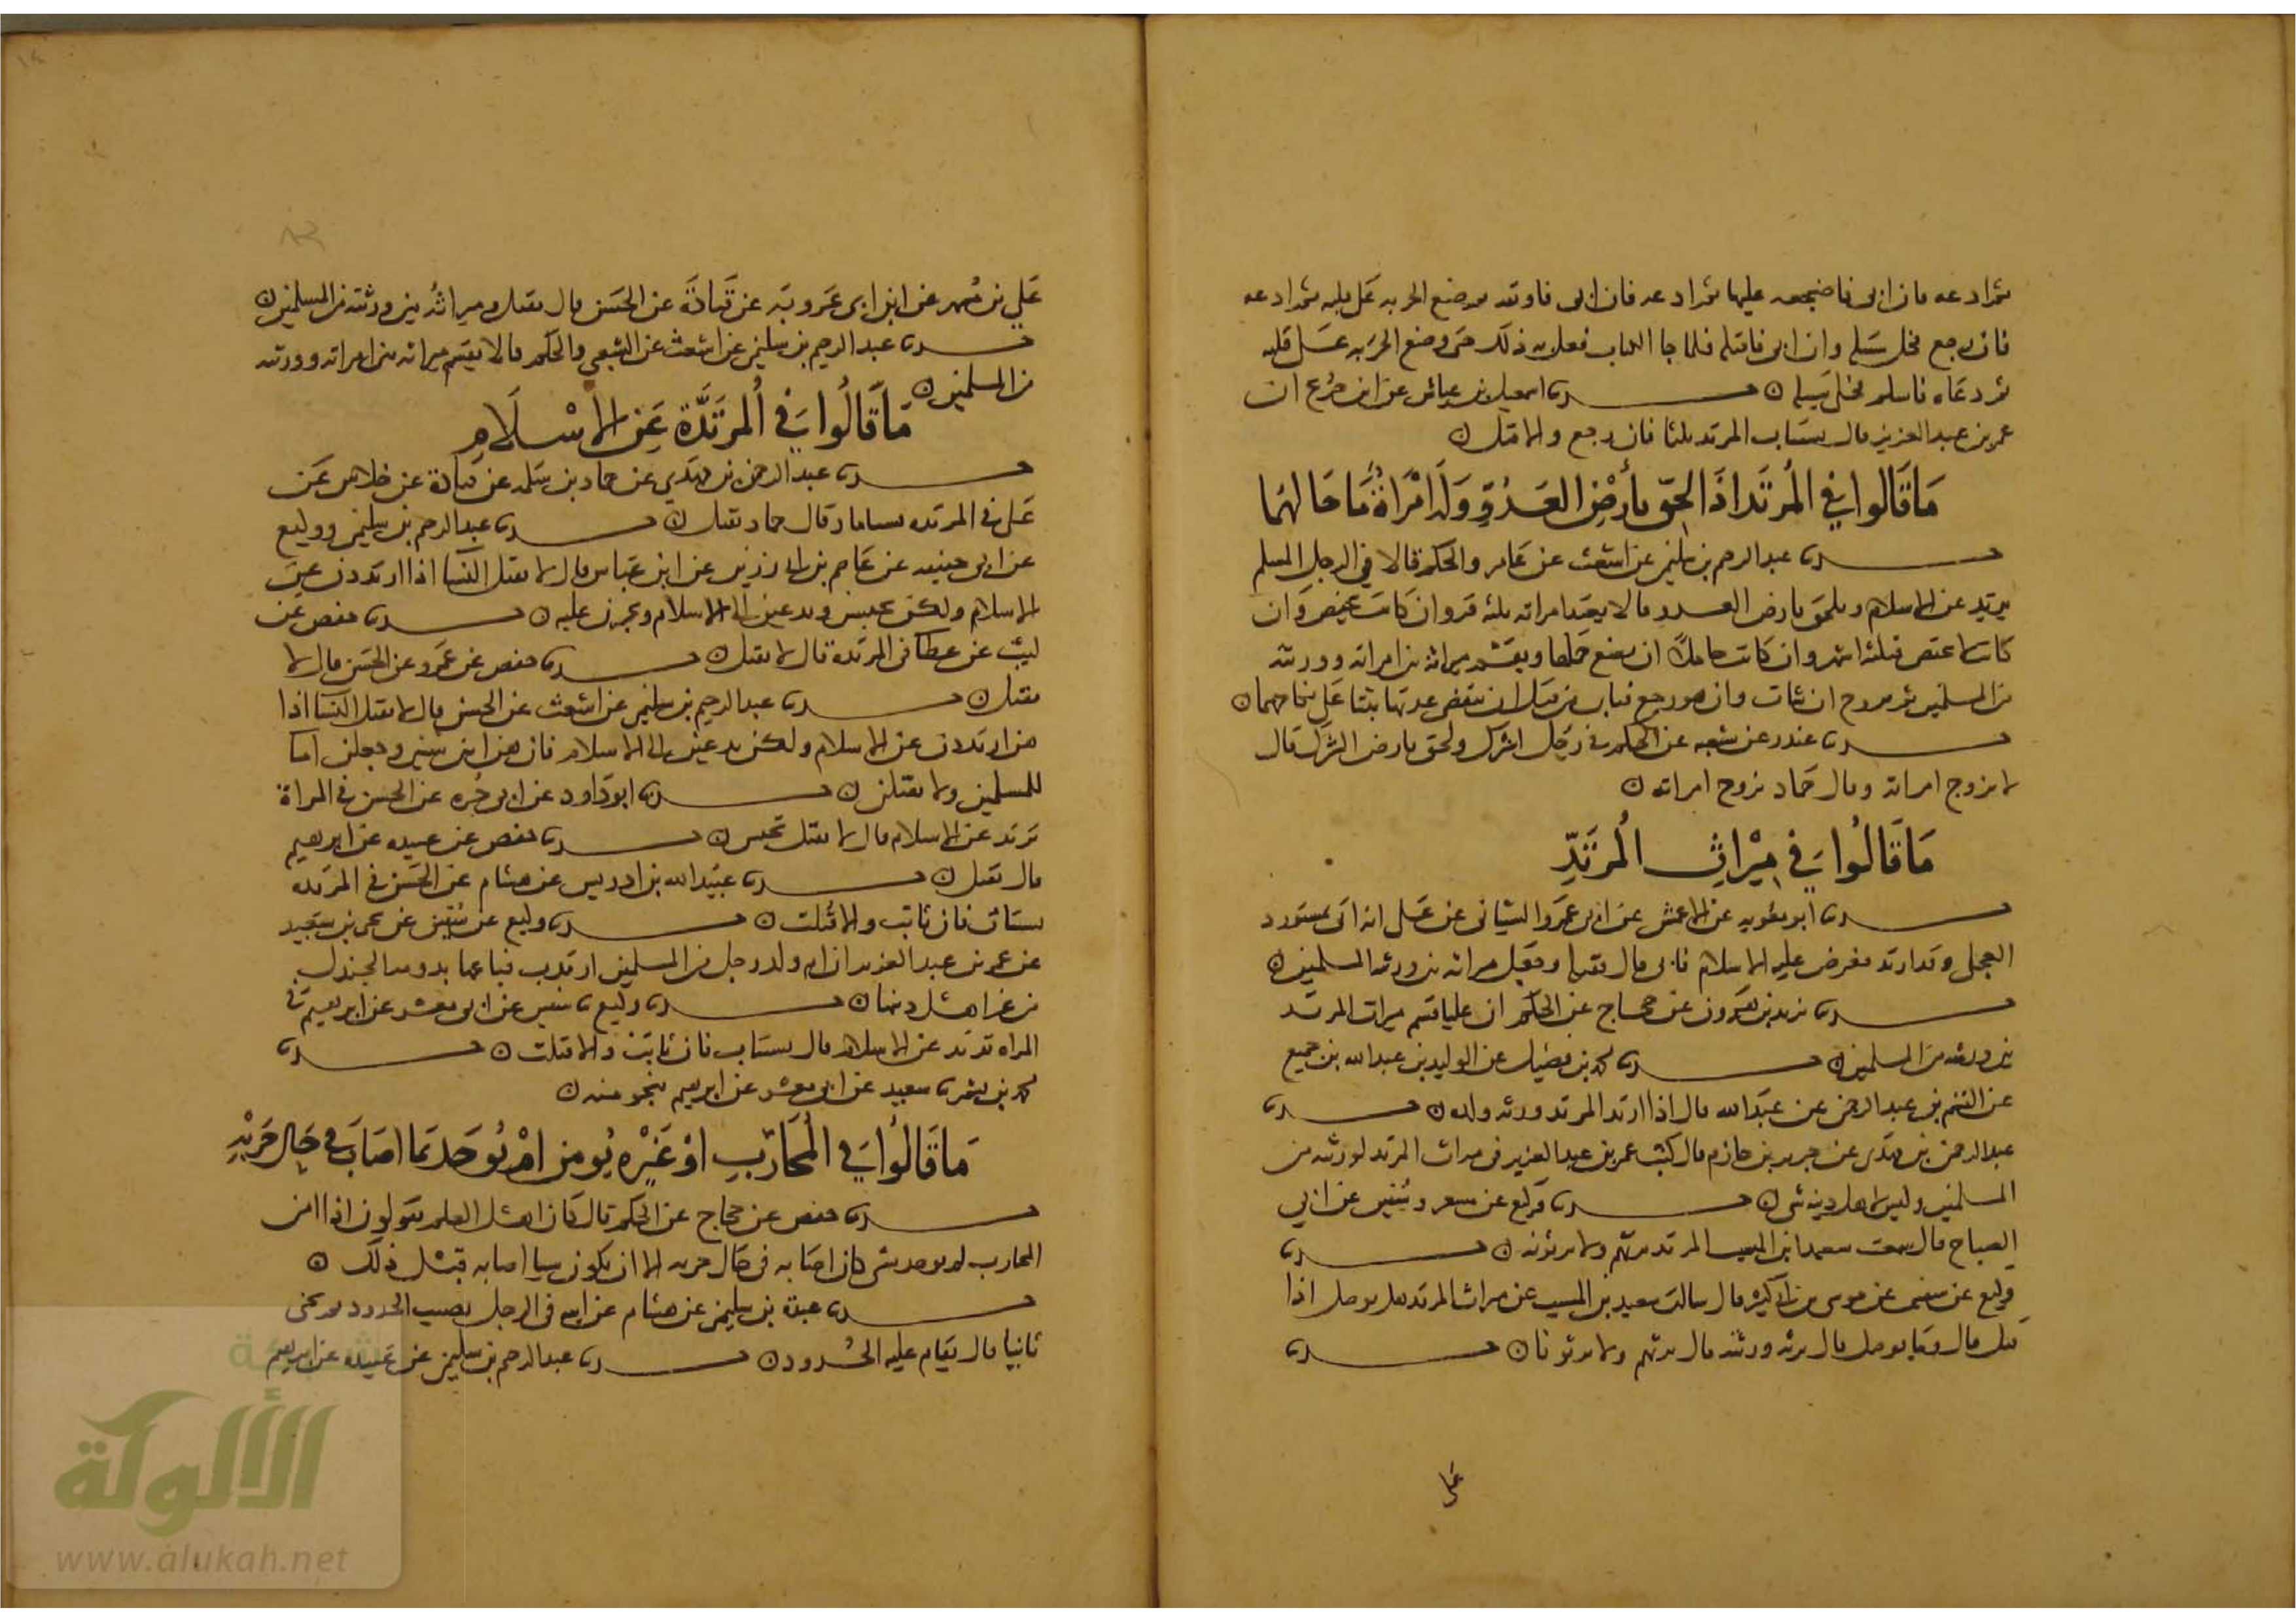 ثم ادعه فان ابى فاضجعه عليها ثم ادعه فان ابى فاوثقه ثم ضع الحربه على قلبه ثم ادعه
فان رجع فخل سبيله وان ابى فاقتله فلما جا الكتاب فعل به ذلك حتى وضع الحربه على قلبه
ثم دعاه فاسلم فخلى سبيله ن حدثنا اسمعيل بن عياش عن ابن جريج ان
عمر بن عبد العزيز قال يستتاب المرتد ثلثا فان رجع والا قتل ن
مَا قَالُوا فِي المُرتَد اذَا لحِق بأرْضِ العَدُوّ وَلَه امْرَاةٌ مَا حَالهمَا
حدثنا عبد الرحيم بن سليمن عن اشعث عن عامر والحكم قالا في الرجل المسلم
يرتد عن الاسلام ويلحق بارض العدو قالا تعتد امراته ثلثه قروء ان كانت تحيض وان
كانت لا تحيض فثلثه اشهر وان كانت حاملا ان تضع حملها ويقسم ميراثه بين امراته وورثته
من المسلمين ثم تزوج ان شات وان هو رجع فتاب من قبل ان تنقضي عدتها ثبتا على نكاحهما ن
حدثنا غندر عن شعبه عن الحكم في رجل اشرك ولحق بارض الشرك قال
لا تزوج امراته وقال حماد تزوج امراته ن
مَا قَالُوا فِي مِيْرَاثِ المُرتَدِّ
حدثنا ابو معويه عن الاعمش عن ابى عمرو الشيبانى عن على انه اتى بمستورد
العجلى وقد ارتد فعرض عليه الاسلام فابى قال فقتله وجعل ميراثه بين ورثته المسلمين ن
حدثنا يزيد بن هرون عن حجاج عن الحكم ان عليا قسم ميراث المرتد
بين ورثته من المسلمين ن حدثنا محمد بن فضيل عن الوليد بن عبد الله بن جميع
عن القسم بن عبد الرحمن عن عبد الله قال اذا ارتد المرتد ورثه ولده ن حدثنا
عبد الرحمن بن مهدى عن جرير بن حازم قال كتب عمر بن عبد العزيز فى ميراث المرتد لورثته من
المسلمين وليس لاهل دينه شى ن حدثنا وكيع عن مسعر وسفين عن ابي
الصباح قال سمعت سعيد ابن المسيب المرتد نرثهم ولا يرثونه ن حدثنا
وكيع عن سفين عن موسى بن ابي كثير قال سالت سعيد بن المسيب عن ميراث المرتد هل يوصل اذا
قتل قال وما يوصل قال يرثه ورثته قال نرثهم ولا يرثونا ن حدثنا
على
عَلي بن مُسهر عن ابن ابى عَروبَة عن قتادَة عن الحسَن قال يقتل وميراثُه بين ورثته من المسلمين ن
حدثنا عبد الرحيم بن سليمن عن اشعث عن الشعبي والحكم قالا يقسم ميراثه بين امراته وورثته
من المسلمين ن
مَا قَالُوا فِي المُرتَدَّة عَنِ الاسْلَامِ
حدثنا عبد الرحمن بن مهدي عن حماد بن سَلمه عن قتادة عن خلاس عَن
عَلى في المرتده تستاما وقال حماد تقتل ن حدثنا عبد الرحيم بن سليمن ووكيع
عن ابى حنيفه عن عَاصم بن ابى رزين عن ابن عباس قال لا تقتل النسا اذا ارتددن عن
الاسلام ولكن يحبسن ويدعين الى الاسلام ويجبرن عليه ن حدثنا حفص عن
ليث عن عطا في المرتدة قال لا تقتل ن حدثنا حفص عن عمرو عن الحسَن قال لا
تقتل ن حدثنا عبد الرحيم بن سليمن عن اشعث عن الحسن قال لا تقتل النسا اذا
هن ارتددن عن الاسلام ولكن يدعين الى الاسلام فان هن ابين سبين وجعلن اما
للمسلمين ولا يقتلن ن حدثنا ابو دَاود عن ابى حُره عن الحسن في المراة
ترتد عن الاسلام قال لا تقتل تحبس ن حدثنا حفص عن عبيده عن ابرهيم
قال تقتل ن حدثنا عبد الله بن ادريس عن هشام عن الحَسَن في المرتده
تستتاب فان تابت والا قُتلت ن حدثنا وكيع عن سُفين عن يحيى بن سَعيد
عن عمر بن عبد العزيز ان ام ولد رجل من المسلمين ارتدت فباعها بدومه الجندل
من غير اهل دينها ن حدثنا وكيع نا سفين عن ابى معشر عن ابرهيم فى
المراه ترتد عن الاسلام قال تستتاب فان تابت والا قتلت ن حدثنا
محمد بن بشر نا سعيد عن ابى معشر عن ابرهيم بنحو منه ن
مَا قَالُوا فِي المُحَارِبِ اوْ غَيْرِه يُومَن امْ يُوخَد بمَا اصَابَ في حَال حَربْهِ
حدثنا حفص عن حجاج عن الحكم قال كان اهل العلم يقولون اذا امن
المحارب لم يوخد بشى كان اصابه فى حَال حربه الا ان يكون شيا اصابه قبل ذلك ن
حدثنا عبدة بن سليمن عن هشام عن ابيه فى الرجل يصيب الحدود ثم يجى
تايبا قال تقام عليه الحُدود ن حدثنا عبد الرحيم بن سليمن عن عَبيده عن ابرهيم
شبكة
الألوكة
www.alukah.net